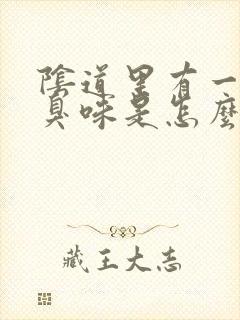 陰道里有一
臭味是怎麼
藏王大志